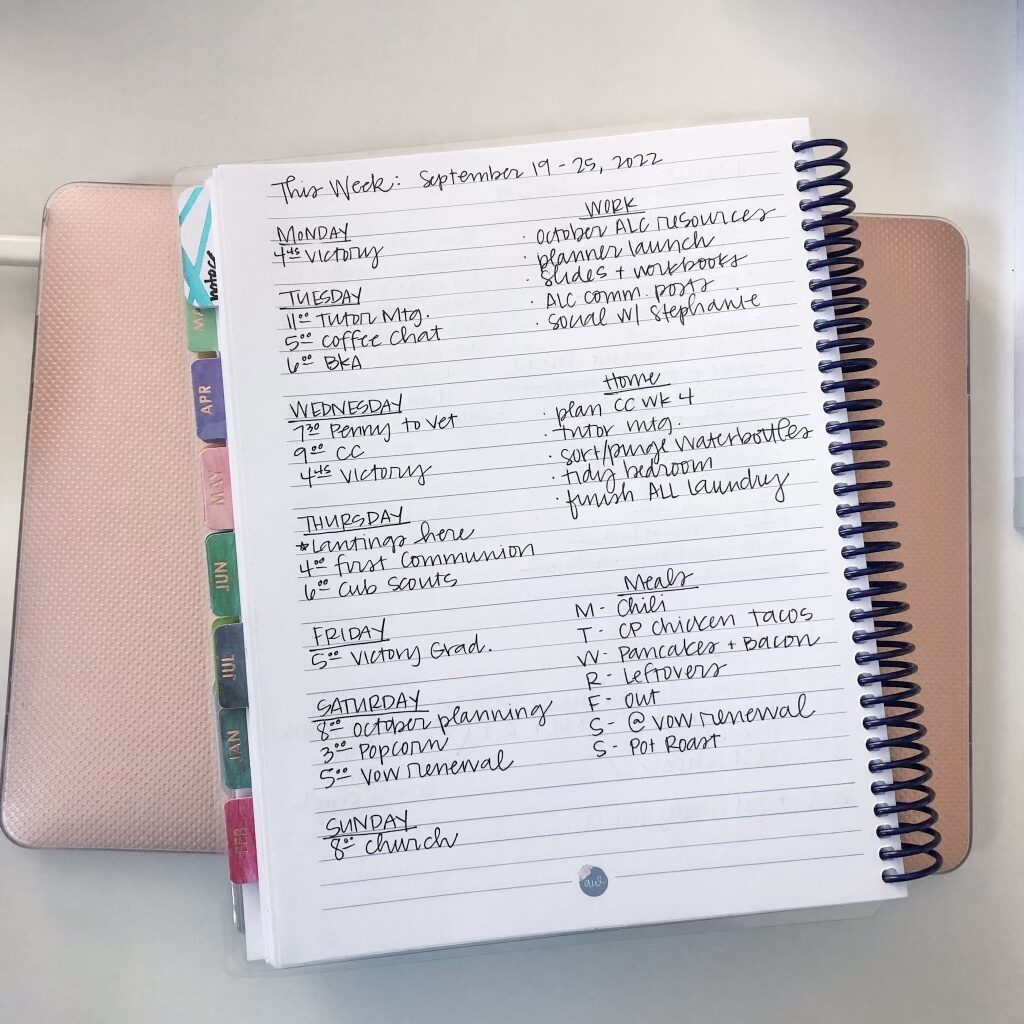 This Week: September 19 - 25, 2022
MONDAY
4:45 Victory
TUESDAY
11:00 Tutor Mtg.
5:00 Coffee Chat
6:00 BKA
WEDNESDAY
7:30 Penny to Vet
9:00 CC
4:45 Victory
THURSDAY
*Lantings here
4:00 First Communion
6:00 Cub Scouts
FRIDAY
5:00 Victory Grad.
SATURDAY
8:00 October planning
3:00 Popcorn
5:00 Vow renewal
SUNDAY
8:00 Church
WORK
· October ALC resources
· planner launch
· slides + workbooks
· ALC comm. posts
· social w/ Stephanie
Home
· plan CC wk 4
· tutor mtg.
· sort/purge waterbottles
· tidy bedroom
· finish ALL laundry
Meals
M - Chili
T - CP Chicken Tacos
W - Pancakes + Bacon
R - Leftovers
F - Out
S - @ vow renewal
S - Pot Roast
aw
notes
MA
APR
MAY
JUN
JUL
JAN
FEB